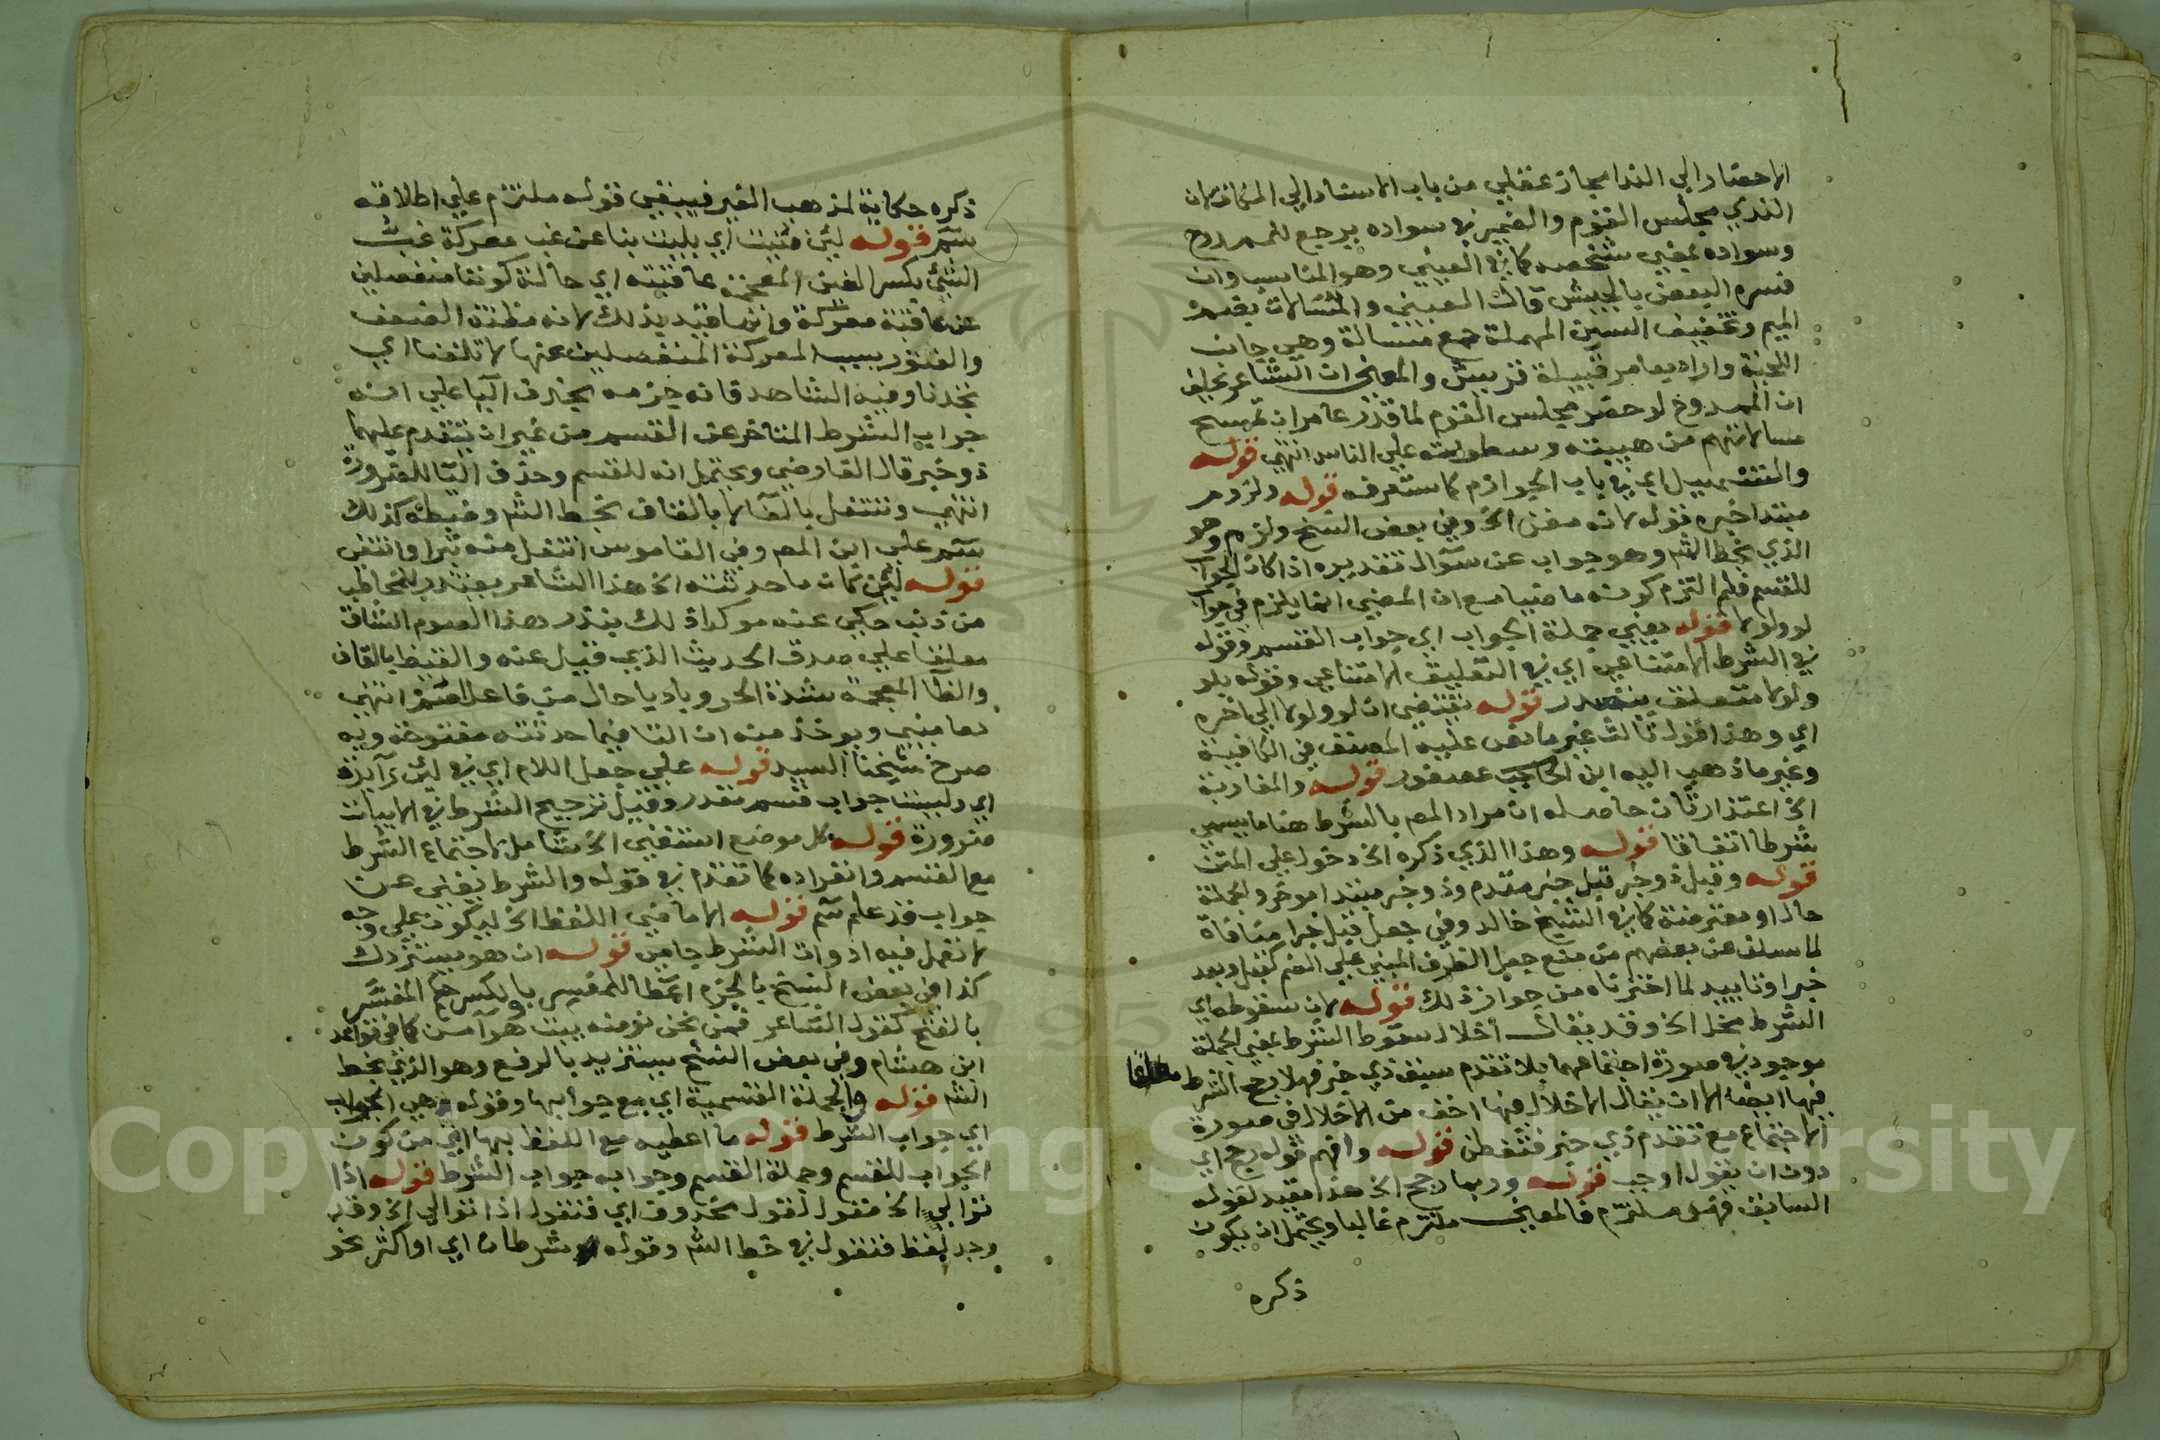 الاحضار الي الندا مجاز عقلي من باب الاسناد الي المكان لان
الندي مجلس القوم والضمير في سواده يرجع للممدوح
وسواده بمعني شخصه كما في العيني وهو المناسب وان
فسره البعض بالجيش قال العيني والمسالات بضم
الميم وتخفيف السين المهملة جمع مسالة وهي جانب
اللحية واراد بعامر قبيلة قريش والمعني ان الشاعر يحلف
ان الممدوح لو حضر مجلس القوم لما قدر عامر ان تمسح
مسالاتهم من هيبته وسطوته علي الناس انتهي قوله
والتسهيل اي في باب الجوازم كما ستعرفه قوله ولزوم
مبتدا خبره قوله لانه مغن الخ وفي بعض النسخ ولزم وهو
الذي بخط الشم وهو جواب عن سؤال تقديره اذا كان الجواب
للقسم فلم التزم كونه ماضيا مع ان المضي انما يلزم في جواب
لو ولولا قوله يعني جملة الجواب اي جواب القسم وقوله
في الشرط الامتناعي اي في التعليق الامتناعي وقوله بلو
ولولا متعلق بتصدر قوله يقتضي ان لو ولولا الي اخره
اي وهذا قول ثالث غير ما نص عليه المصنف في الكافية
وغير ما ذهب اليه ابن الحاجب عصفور قوله والمغاربة
الخ اعتذار ثان حاصله ان مراد المصم بالشرط هنا ما يسمي
شرطا اتفاقا قوله وهذا الذي ذكره الخ دخول علي المتن
قوله وقبل ذو خبر قبل خبر مقدم وذو خبر مبتدا موخر والجملة
حال او معترضة كما في الشيخ خالد وفي جعل قبل خبرا منافاة
لما سلف عن بعضهم من منع جعل الظرف المبني علي الضم كقبل وبعد
خبرا وتاييد لما اخترناه من جواز ذلك قوله لان سقوطه اي
الشرط مخل الخ وقد يقال اخلال سقوط الشرط بمعني الجملة
موجود في صورة اجتماعهما بلا تقدم سبق ذي خبر فهلا رجح الشرط مطلقا
فيها ايضا الا ان يقال الاخلال فيها اخف من الاخلال في صورة
الاجتماع مع تقدم ذي خبر فتفطن قوله وافهم قوله رجح اي
دون ان يقول اوجب قوله وربما رجح الخ هذا مقيد لقوله
السابق فهو ملتزم فالمعني ملتزم غالبا ويحتمل ان يكون
ذكره
ذكره حكاية لمذهب الغير فيبقي قوله ملتزم علي اطلاقه
سم قوله لئن منيت اي بليت بنا عن غب معركة غب
الشئ بكسر الغين المعجمة عاقبته اي حالة كوننا منفصلين
عن عاقبة معركة وانما قيد بذلك لانه مظنة الضعف
والفتور بسبب المعركة المنفصلين عنها لا تلفنا اي
تجدنا وفيه الشاهد فانه جزمه بحذف اليا علي انه
جواب الشرط المتاخر عن القسم من غير ان يتقدم عليهما
ذو خبر قال القارضي ويحتمل انه للقسم وحذف اليا للضرورة
انتهي وننتفل بالفا لا بالقاف بخط الشم وضبطه كذلك
سم علي ابن المصم وفي القاموس انتفل منه تبرا وانتفي
قوله لئن كان ما حدثته الخ هذا الشاعر يعتذر للمخاطب
من ذنب حكي عنه موكدا ذلك بنذر هذا الصوم الشاق
معلقا علي صدق الحديث الذي قيل عنه والقيظ بالقاف
والظا المعجمة شدة الحر وباديا حال من فاعل اصم انتهي
دماميني ويوخذ منه ان التا فيما حدثته مفتوحة وبه
صرح شيخنا السيد قوله علي جعل اللام اي في لئن زائدة
اي وليست جواب قسم مقدر وقيل ترجيح الشرط في الابيات
ضرورة قوله كل موضع استغني الخ شامل لاجتماع الشرط
مع القسم وانفراده كما تقدم في قوله والشرط يغني عن
جواب قد علم سم قوله الا ماضي اللفظ الخ ليكون علي وجه
لا تعمل فيه ادوات الشرط جامي قوله ان هو يستزدك
كذا في بعض النسخ بالجزم اعطا للمفسر بالكسر حكم المفسر
بالفتح كقول الشاعر فمن نحن نومنه يبت هو آمن كما في قواعد
ابن هشام وفي بعض النسخ يستزيد بالرفع وهو الذي بخط
الشم قوله والجملة القسمية اي مع جوابها وقوله هي الجواب
اي جواب الشرط قوله ما اعطيه مع اللفظ بها اي من كون
الجواب للقسم وجملة القسم وجوابه جواب الشرط قوله اذا
توالي الخ مقول لقول محذوف اي فنقول اذا توالي الخ وقد
وجد لفظ فنقول في خط الشم وقوله شرطان اي او اكثر نحو
Copyright © King Saud University
1957